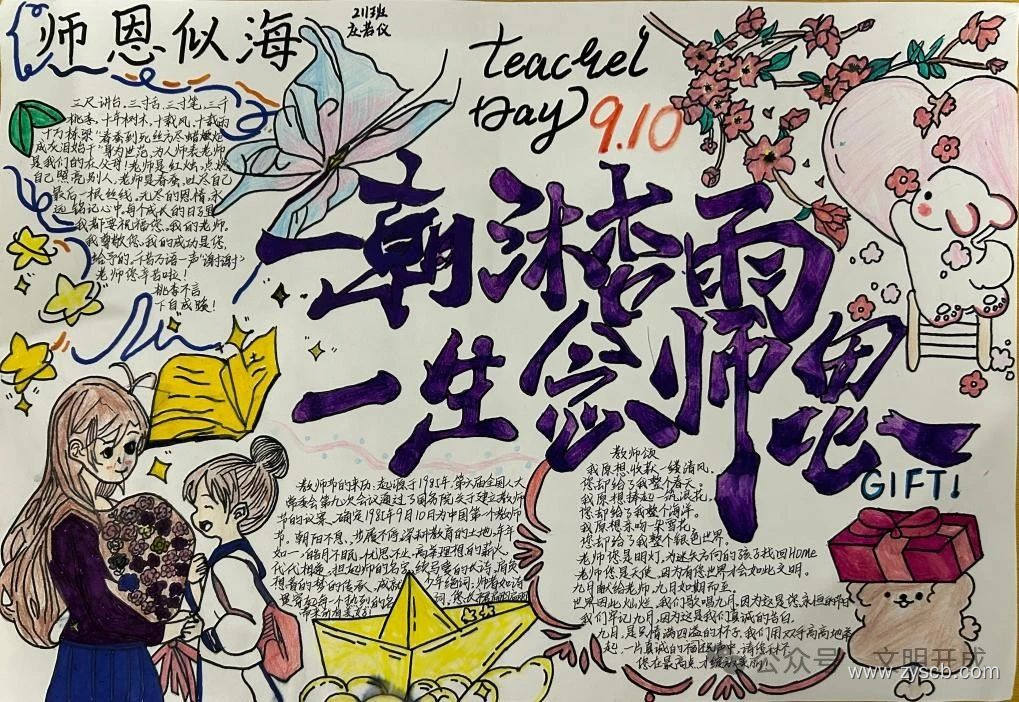 师恩似海
211班
teacher
Day
9.10
三尺讲台，三寸舌，三寸笔，三千
桃李，十年树木，十载风，十载雨
十万栋梁"春蚕到死丝方尽蜡炬
成灰泪始干"身为世范，为人师表，老师
是我们的 老师是红烛，点燃
自己照亮别人，老师是春蚕，吐尽自己
最后一根丝线，无尽的恩情，永
远铭记心中，每个成长的日子里
我都要祝福您，我的老师。
我尊敬您，我的成功是您，
给予的，千言万语一声"谢谢"
老师您辛苦啦！
桃李不言
下自成蹊！
一朝沐杏雨
一生念师恩
GIFT!
教师节的来历：起源于1985年，第六届全国人大
常委会第九次会议通过了国务院关于建立教师
节的议案，确定1985年9月10日为中国第一个教师
节。朝阳不息，步履不停，深耕教育的土地，年年
如一，皓月不眠，忧思不止，高举理想的薪火，
代代相
教师颂
我原想收获一缕清风，
您却给了我整个春天。
我原想捧起一 浪花，
您却给了我整个海洋。
我原想亲吻一朵雪花，
您却给了我整个银色世界，
老师您是明灯，为迷失方向的孩子找回Home
老师您是天使，因为有您世界才会如此文明。
九月献给老师，九月如期而至。
世界因此 我们歌唱九月，因为这是您永恒的节日
我们牢记九月，因为这是我们真诚的告白。
九月，是只情满四溢的杯子，我们用双手高高地举
起，一片真诚的福 中，请您干杯
公众号 文明开成
www.zyscb.com